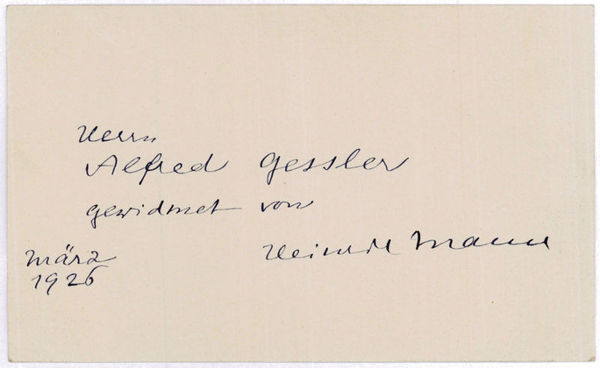 Herrn
Alfred Gessler
gewidmet von
Heinrich Mann
März
1926